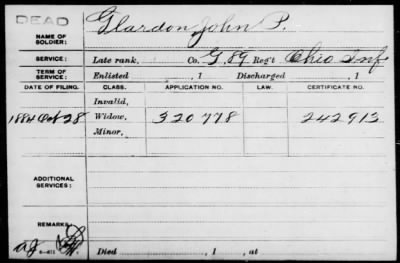 DEAD
NAME OF SOLDIER: Glardon, John P.
SERVICE: Late rank, Co. G 89 Reg't Ohio Inf
TERM OF SERVICE: Enlisted , 1 Discharged , 1
DATE OF FILING. CLASS. APPLICATION NO. LAW. CERTIFICATE NO.
Invalid,
1884 Oct 28 Widow, 320778 242913
Minor,
ADDITIONAL SERVICES:
REMARKS:
Died , 1 , at